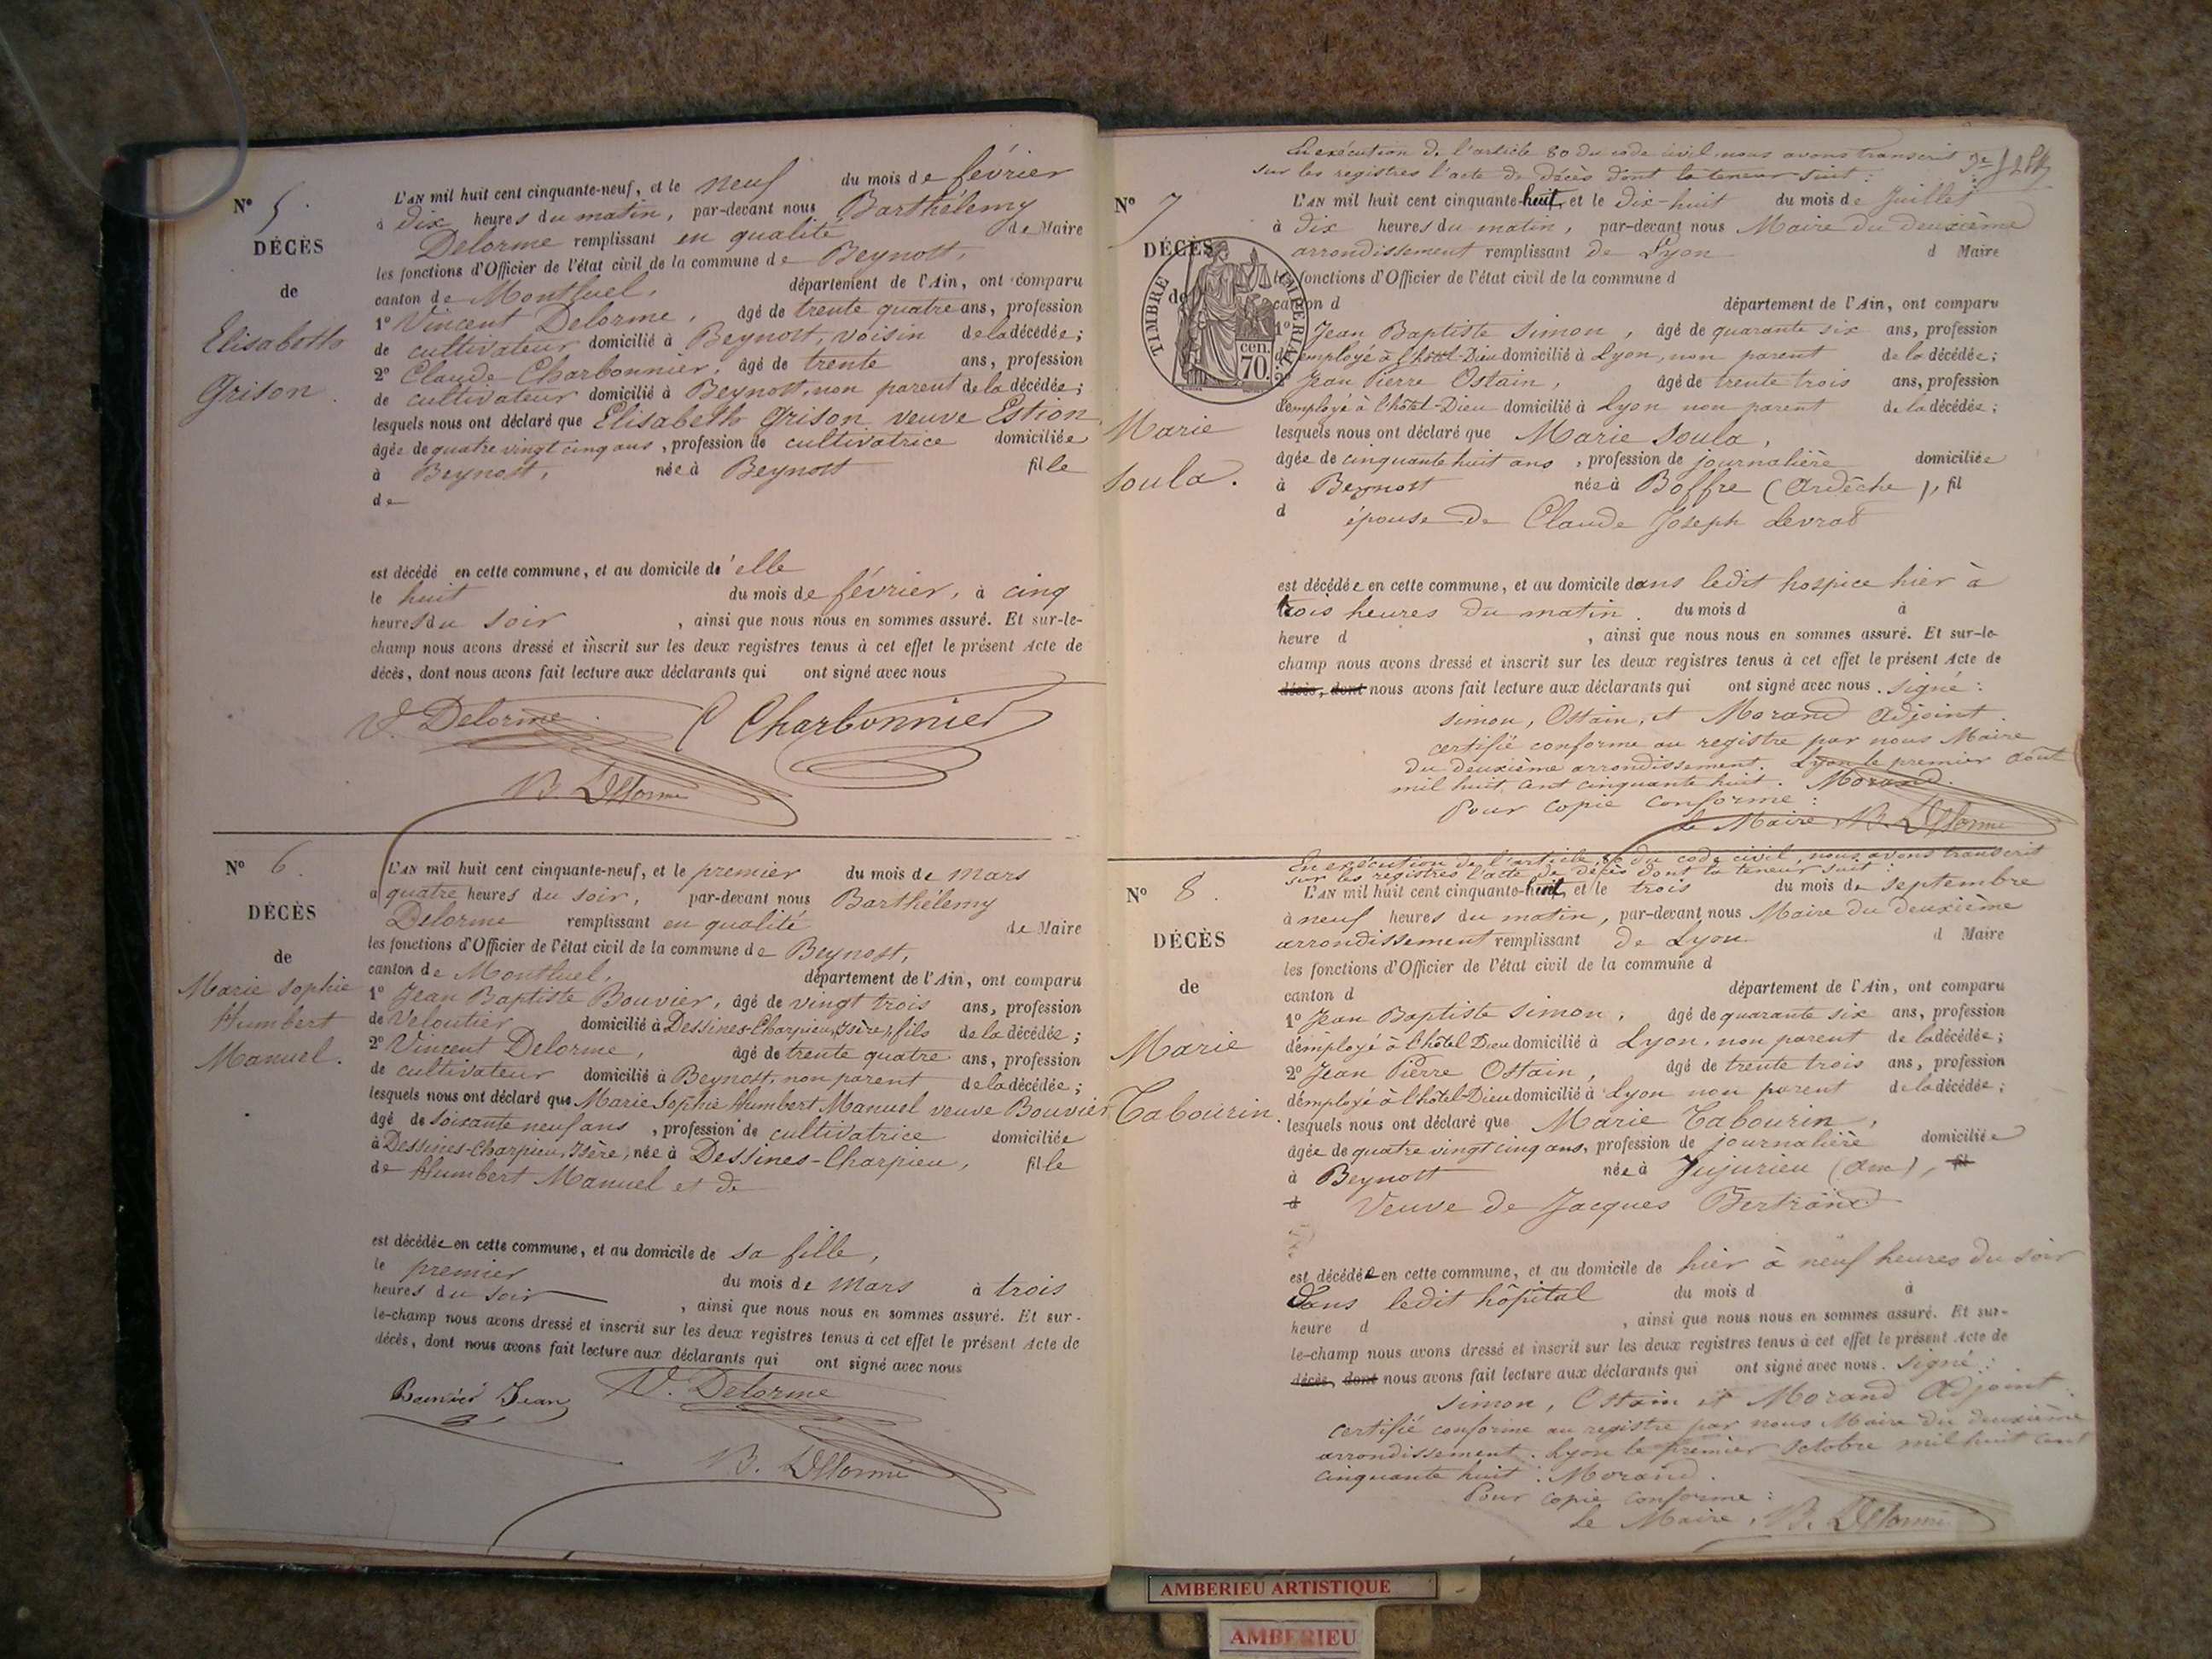 N° 5.
DÉCÈS
de
Elisabeth
Grison.
L'AN mil huit cent cinquante-neuf, et le neuf du mois de février
à dix heures du matin, par-devant nous Barthélemy
Delorme remplissant en qualité de Maire
les fonctions d'Officier de l'état civil de la commune de Beynost,
canton de Montluel, département de l'Ain, ont comparu
1° Vincent Delorme, âgé de trente quatre ans, profession
de cultivateur domicilié à Beynost, voisin de la décédée;
2° Claude Charbonnier, âgé de trente ans, profession
de cultivateur domicilié à Beynost, non parent de la décédée;
lesquels nous ont déclaré que Elisabeth Grison veuve Estion
âgée de quatre vingt cinq ans, profession de cultivatrice domiciliée
à Beynost, née à Beynost fille
de
est décédé en cette commune, et au domicile d'elle
le huit du mois de février, à cinq
heures du soir, ainsi que nous nous en sommes assuré. Et sur-le-
champ nous avons dressé et inscrit sur les deux registres tenus à cet effet le présent Acte de
décès, dont nous avons fait lecture aux déclarants qui ont signé avec nous
V. Delorme C Charbonnier
B. Delorme
N° 6.
DÉCÈS
de
Marie Sophie
Humbert
Manuel.
L'AN mil huit cent cinquante-neuf, et le premier du mois de mars
à quatre heures du soir, par-devant nous Barthélemy
Delorme remplissant en qualité de Maire
les fonctions d'Officier de l'état civil de la commune de Beynost,
canton de Montluel, département de l'Ain, ont comparu
1° Jean Baptiste Bouvier, âgé de vingt trois ans, profession
de Veloutier domicilié à Dessines-Charpieu, Isère, fils de la décédée;
2° Vincent Delorme, âgé de trente quatre ans, profession
de cultivateur domicilié à Beynost, non parent de la décédée;
lesquels nous ont déclaré que Marie Sophie Humbert Manuel veuve Bouvier
âgé de soixante neuf ans, profession de cultivatrice domiciliée
à Dessines-Charpieu, Isère, née à Dessines-Charpieu, fille
de Humbert Manuel et de
est décédée en cette commune, et au domicile de sa fille,
le premier du mois de mars à trois
heures du soir, ainsi que nous nous en sommes assuré. Et sur-
le-champ nous avons dressé et inscrit sur les deux registres tenus à cet effet le présent Acte de
décès, dont nous avons fait lecture aux déclarants qui ont signé avec nous
Bouvier Jean V. Delorme
B. Delorme
En exécution de l'article 80 du code civil, nous avons transcrit
sur les registres l'acte de décès dont la teneur suit:
N° 7
DÉCÈS
de
TIMBRE IMPÉRIAL
70. cen.
Marie
Soula.
L'AN mil huit cent cinquante-huit, et le dix-huit du mois de Juillet
à dix heures du matin, par-devant nous Maire du deuxième
arrondissement remplissant de Lyon d Maire
les fonctions d'Officier de l'état civil de la commune d
canton d département de l'Ain, ont comparu
1° Jean Baptiste Simon, âgé de quarante six ans, profession
d'employé à l'hôtel-Dieu domicilié à Lyon, non parent de la décédée;
2° Jean Pierre Ostain, âgé de trente trois ans, profession
d'employé à l'hôtel-Dieu domicilié à Lyon non parent de la décédée;
lesquels nous ont déclaré que Marie Soula,
âgée de cinquante huit ans, profession de journalière domiciliée
à Beynost née à Boffre (Ardèche), fil
d épouse de Claude Joseph Levrat
est décédée en cette commune, et au domicile dans ledit hospice hier à
trois heures du matin. du mois d à
heure d , ainsi que nous nous en sommes assuré. Et sur-le-
champ nous avons dressé et inscrit sur les deux registres tenus à cet effet le présent Acte de
décès, dont nous avons fait lecture aux déclarants qui ont signé avec nous. Signé:
Simon, Ostain, et Morand Adjoint.
certifié conforme au registre par nous Maire
du deuxième arrondissement. Lyon le premier Août
mil huit cent cinquante huit. Morand.
Pour copie conforme:
Le Maire, B. Delorme
En exécution de l'article 80 du code civil, nous avons transcrit
sur les registres l'acte de décès dont la teneur suit:
N° 8.
DÉCÈS
de
Marie
Tabourin.
L'AN mil huit cent cinquante-huit, et le trois du mois de septembre
à neuf heures du matin, par-devant nous Maire du deuxième
arrondissement remplissant de Lyon d Maire
les fonctions d'Officier de l'état civil de la commune d
canton d département de l'Ain, ont comparu
1° Jean Baptiste Simon, âgé de quarante six ans, profession
d'employé à l'hôtel Dieu domicilié à Lyon, non parent de la décédée;
2° Jean Pierre Ostain, âgé de trente trois ans, profession
d'employé à l'hôtel-Dieu domicilié à Lyon non parent de la décédée;
lesquels nous ont déclaré que Marie Tabourin,
âgée de quatre vingt cinq ans, profession de journalière domiciliée
à Beynost née à Jujurieu (Ain), fil
d Veuve de Jacques Bertrand
est décédée en cette commune, et au domicile de hier à neuf heures du soir
dans ledit hôpital du mois d à
heure d , ainsi que nous nous en sommes assuré. Et sur-
le-champ nous avons dressé et inscrit sur les deux registres tenus à cet effet le présent Acte de
décès, dont nous avons fait lecture aux déclarants qui ont signé avec nous. Signé:
Simon, Ostain et Morand Adjoint.
certifié conforme au registre par nous Maire du deuxième
arrondissement. Lyon le premier Octobre mil huit cent
cinquante huit: Morand.
Pour copie conforme:
Le Maire, B. Delorme
AMBERIEU ARTISTIQUE
AMBERIEU